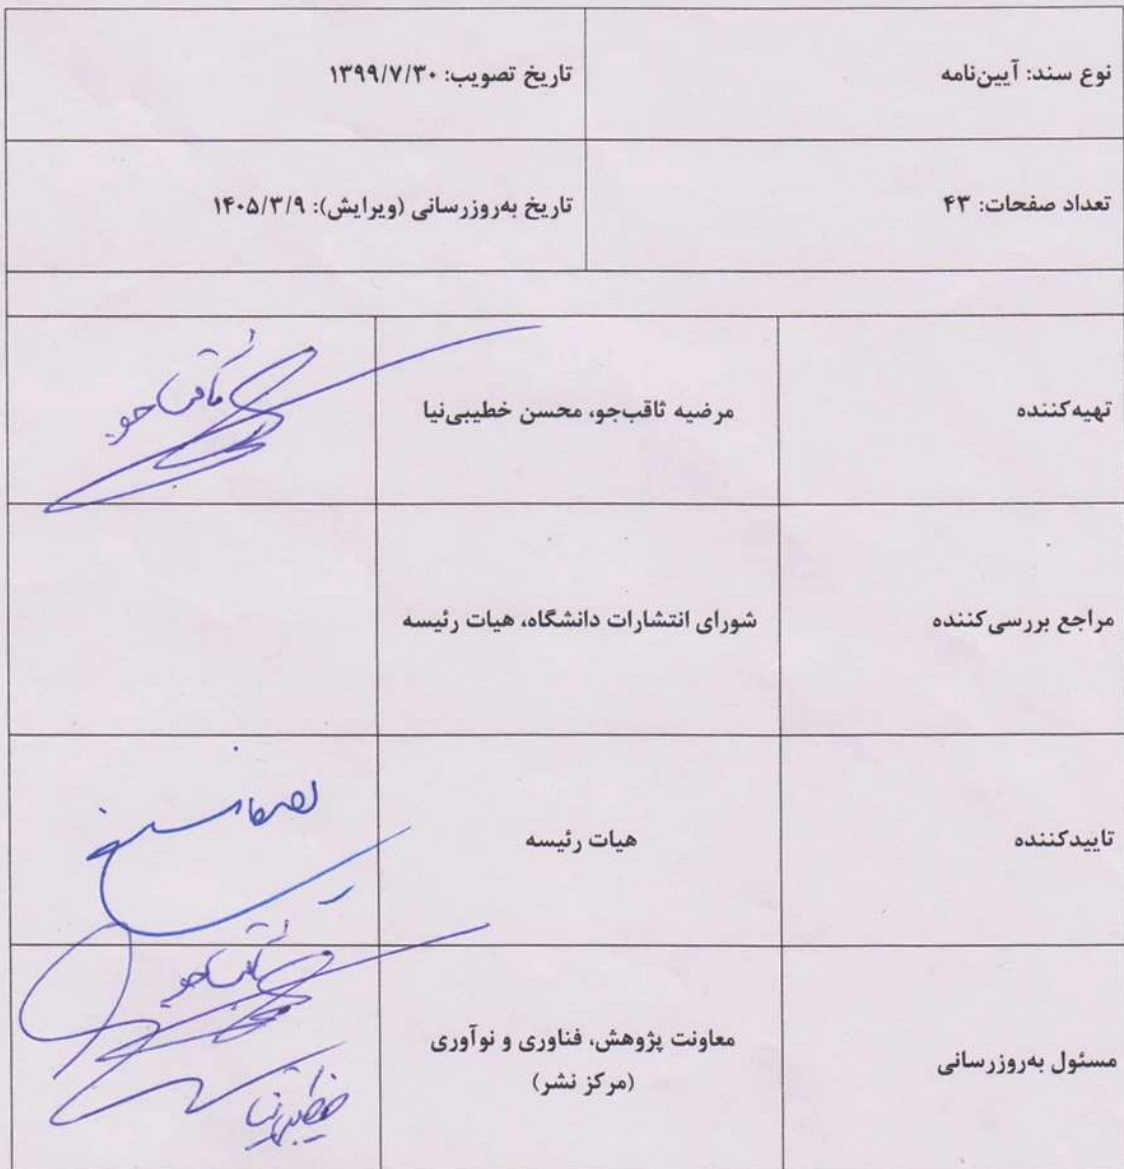 نوع سند: آیین‌نامه
تاریخ تصویب: ۱۳۹۹/۷/۳۰
تعداد صفحات: ۴۳
تاریخ به‌روزرسانی (ویرایش): ۱۴۰۵/۳/۹
تهیه‌کننده
مرضیه ثاقب‌جو، محسن خطیبی‌نیا
ثاقب‌جو
مراجع بررسی‌کننده
شورای انتشارات دانشگاه، هیات رئیسه
تاییدکننده
هیات رئیسه
مسئول به‌روزرسانی
معاونت پژوهش، فناوری و نوآوری
(مرکز نشر)
ثاقب‌جو
خطیبی‌نیا